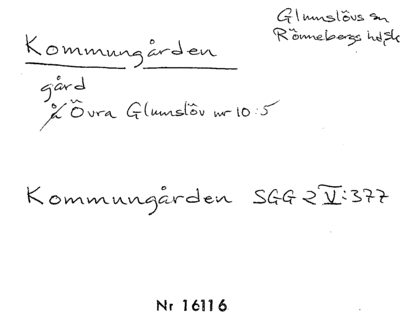 Glumslövs sn
Rönnebergs hd, Sk
Kommungården
gård
å Övra Glumslöv nr 10:5
Kommungården SGG 2 V:377
Nr 16116